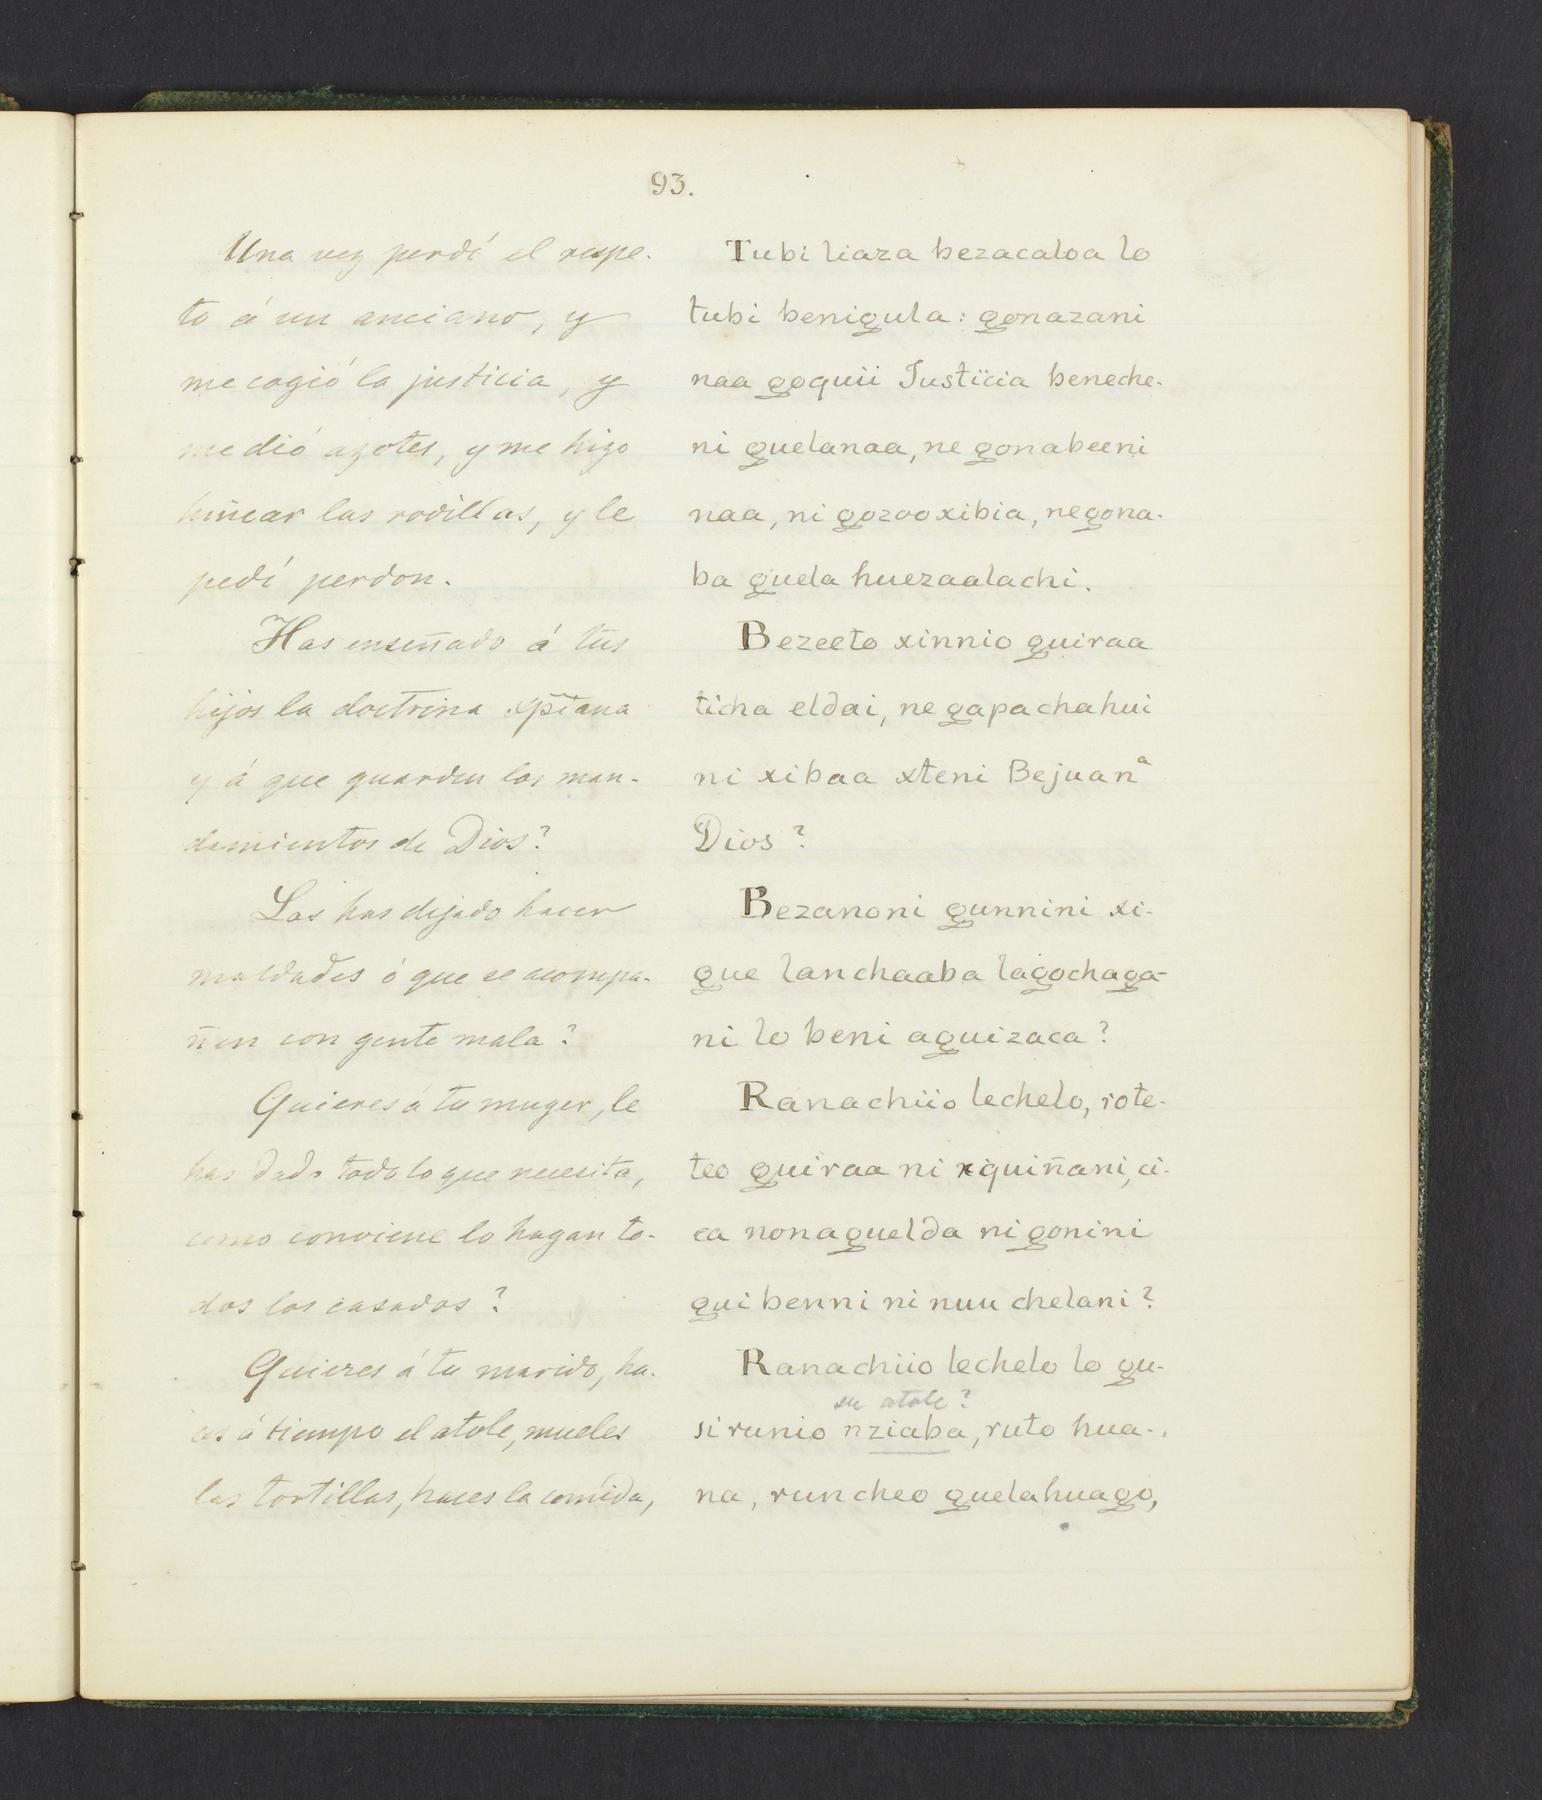 93.
Una vez perdí el respe-
to á un anciano, y
me cogió la justicia, y
me dió azotes, y me hizo
hincar las rodillas, y le
pedí perdon.
Has enseñado á tus
hijos la doctrina xp̃iana
y á que guarden los man-
damientos de Dios?
Los has dejado hacer
maldades ó que se acompa-
ñen con gente mala?
Quieres á tu muger, le
has dado todo lo que necesita,
como conviene lo hagan to-
dos los casados?
Quieres á tu marido, ha-
ces á tiempo el atole, mueles
las tortillas, haces la comida,
Tubi liaza bezacaloa lo
tubi benigula: gonazani
naa goquii Justicia beneche-
ni guelanaa, ne gonabeeni
naa, ni gozooxibia, negona-
ba guela huezaalachi.
Bezeeto xinnio guiraa
ticha eldai, ne gapachahui
ni xibaa xteni Bejuanª
Dios?
Bezanoni gunnini xi-
gue lanchaaba lagochaga-
ni lo beni aguizaca?
Ranachiio lechelo, rote-
teo guiraa ni xiquiñani, ci-
ca nonaguelda ni gonini
gui benni ni nuu chelani?
Ranachiio lechelo lo gu-
su atole?
si runio nziaba, ruto hua-
na, runcheo guelahuago,